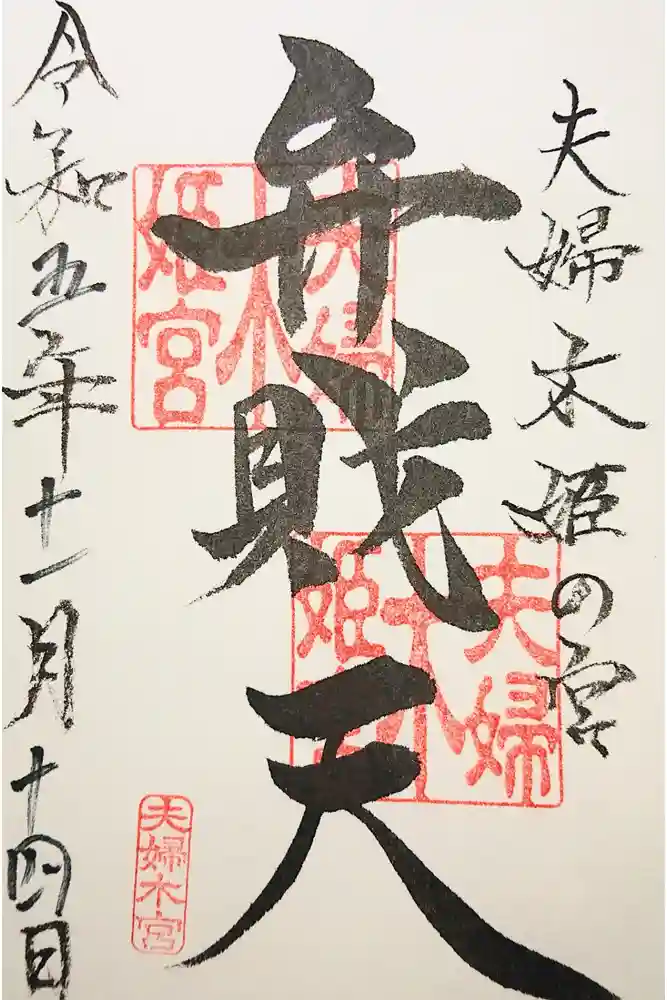 夫婦木姫の宮
弁財天
令和五年十一月十四日
夫婦木姫宮
夫婦木姫宮
夫婦木宮